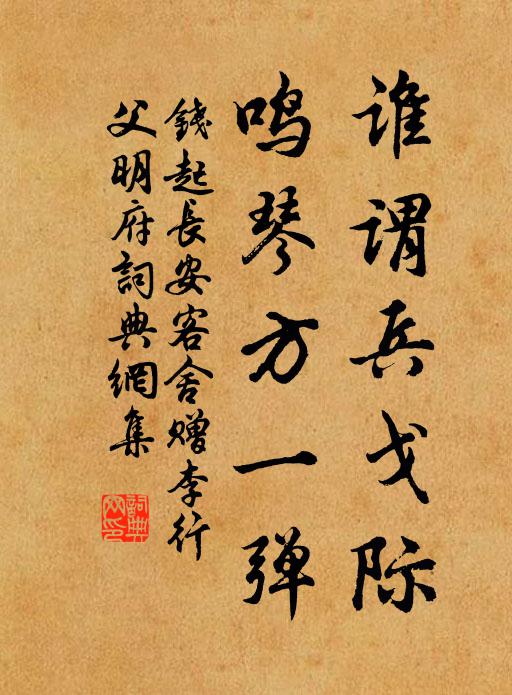 谁谓兵戈际
鸣琴方一弹
錢起長安客舍赠李行
父明府詞典網集
詞典
网印